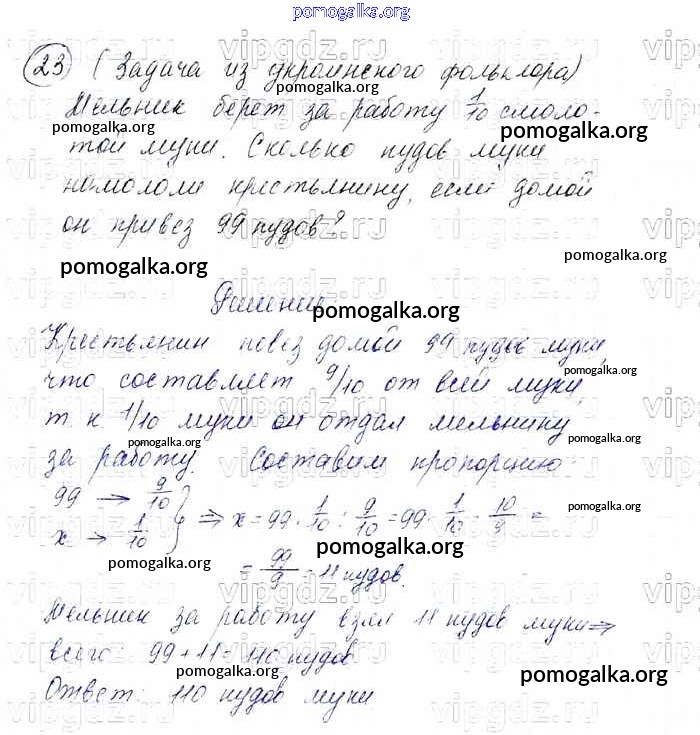 pomogalka.org
23 (Задача из украинского фольклора)
pomogalka.org
Мельник берет за работу 1/10 смоло-
pomogalka.org pomogalka.org
той муки. Сколько пудов муки
намололи крестьянину, если домой
он привез 99 пудов?
pomogalka.org pomogalka.org
Решение
pomogalka.org
Крестьянин повез домой 99 пудов муки,
pomogalka.org
что составляет 9/10 от всей муки,
т к 1/10 муки он отдал мельнику
pomogalka.org pomogalka.org
за работу. Составим пропорцию
99 → 9/10
x → 1/10 } ⇒ x = 99 · 1/10 : 9/10 = 99 · 1/10 · 10/9 =
pomogalka.org
pomogalka.org pomogalka.org
= 99/9 = 11 пудов.
Мельник за работу взял 11 пудов муки ⇒
всего 99 + 11 = 110 пудов
pomogalka.org pomogalka.org
Ответ: 110 пудов муки
vipgdz.ru